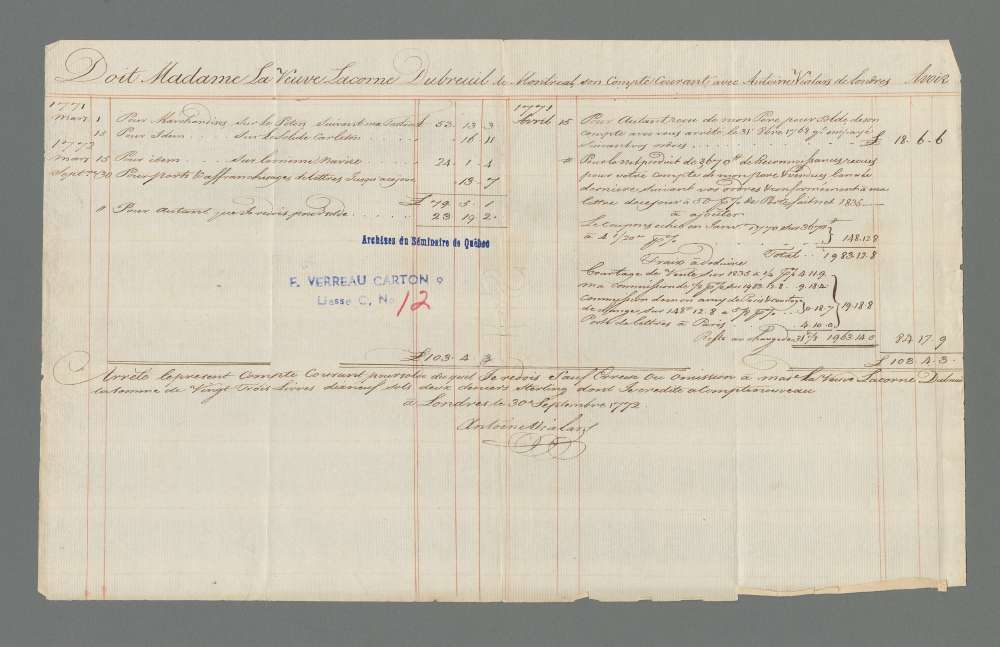 Doit Madame La Veuve Lacorne Dubreuil de Montreal son Compte Courant avec Antoine Vialars de Londres Avoir
1771
Mars 1 Pour Marchandises, Sur le Peton Suivant ma facture £ 53. 13. 3
15 Pour Idem . . . Sur le Carleton . . 16. 11
1772
Mars 15 Pour idem . . . Sur 24. 1. 4
Sept. 30 Pour ports & affranchissages de lettres Jusqu'a ce jour . 13. 7
£ 79. 5. 1
" Pour Autant que Je redois pour Solde . . . . 23. 19. 2.
Archives du Séminaire de Québec
F. VERREAU CARTON 9
Liasse C, No 12
£ 103. 4. 3
1771
Avril 15 Pour Autant recu de mon Pere, pour Solde de son
compte avec vous arrêté le 31 Xbre 1768
Suivant vos ordres . . . £ 18. 6. 6
" Pour le net produit de 3670 de Reconnaissances recues
pour votre compte de mon pere & vendues l'année
derniere suivant vos ordres & conformement a ma
lettre de ce jour à 50 p% de Perte, fait net 1835
à ajouter
Le coupon échu en Janv. 1770 sur 3670
à 4 1/20 p% . . . 148. 12. 8
Total . . 1983. 12. 8
Fraix à deduire
Courtage de Vente Sur 1835 à 1/4 p% 4. 11. 9
ma commission de 1/2 p% sur 1983. 12. 8 . 9. 18. 4
commission de mon amy de Paris & courtage
de change, sur 148. 12. 8 a 5/8 p% . . 0. 18. 7
19. 18. 8
Ports de lettres à Paris . 4. 10. 0
Reste au change de 31 1963. 14. 0 84. 17. 9
£ 103. 4. 3.
Arrêté le present Compte Courant pour solde du quel Je redois Sauf Erreur ou Omission à mad. la Veuve Lacorne Dubreuil
la somme de Vingt Trois Livres dixneuf sols deux deniers Sterling dont Je credite à compte nouveau
à Londres le 30e Septembre 1772.
Antoine Vialars